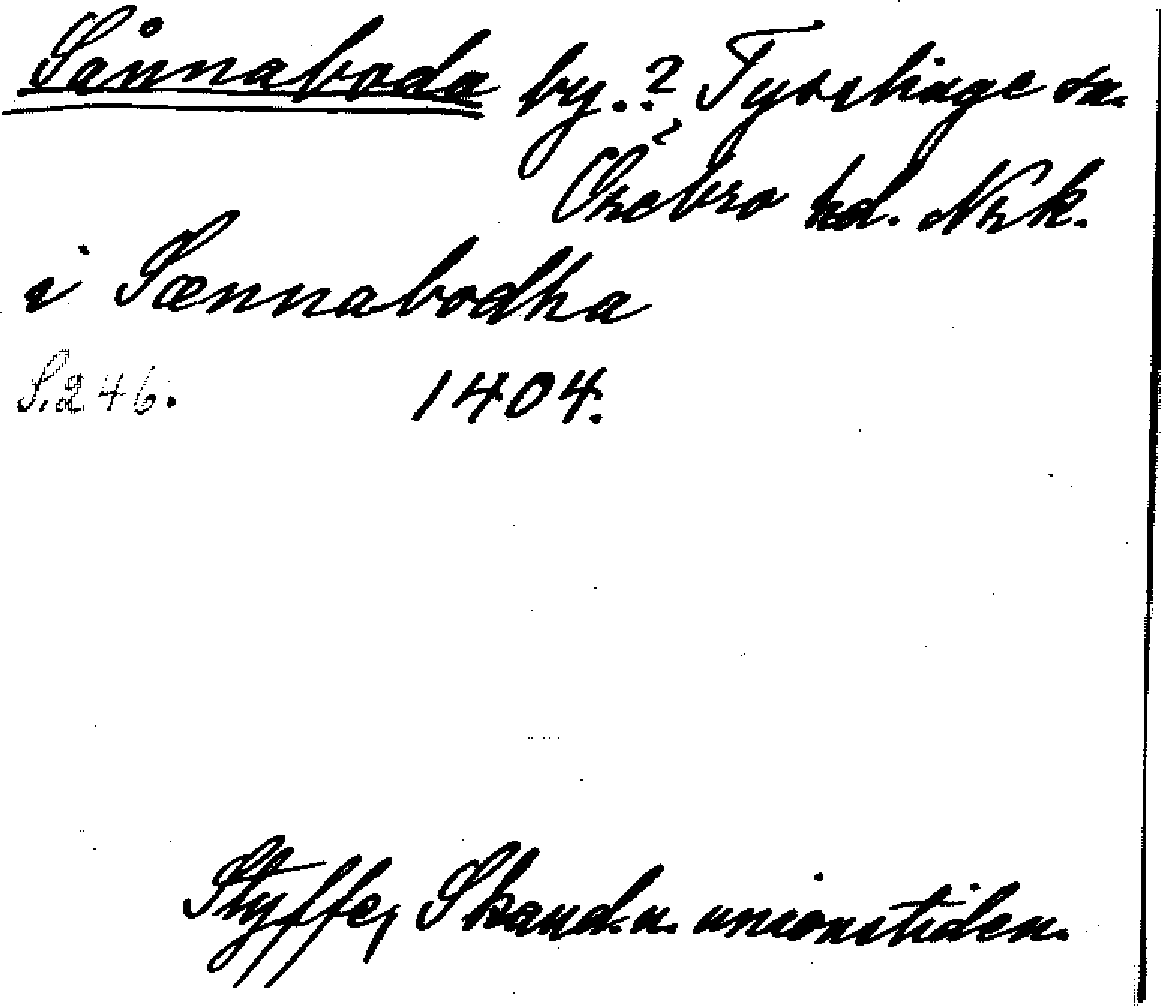 Sånnaboda by.? Tysslinge sn.
Örebro hd. Nrk.
i Sænnabodha
S. 246. 1404.
Styffe, Skand. u. unionstiden.